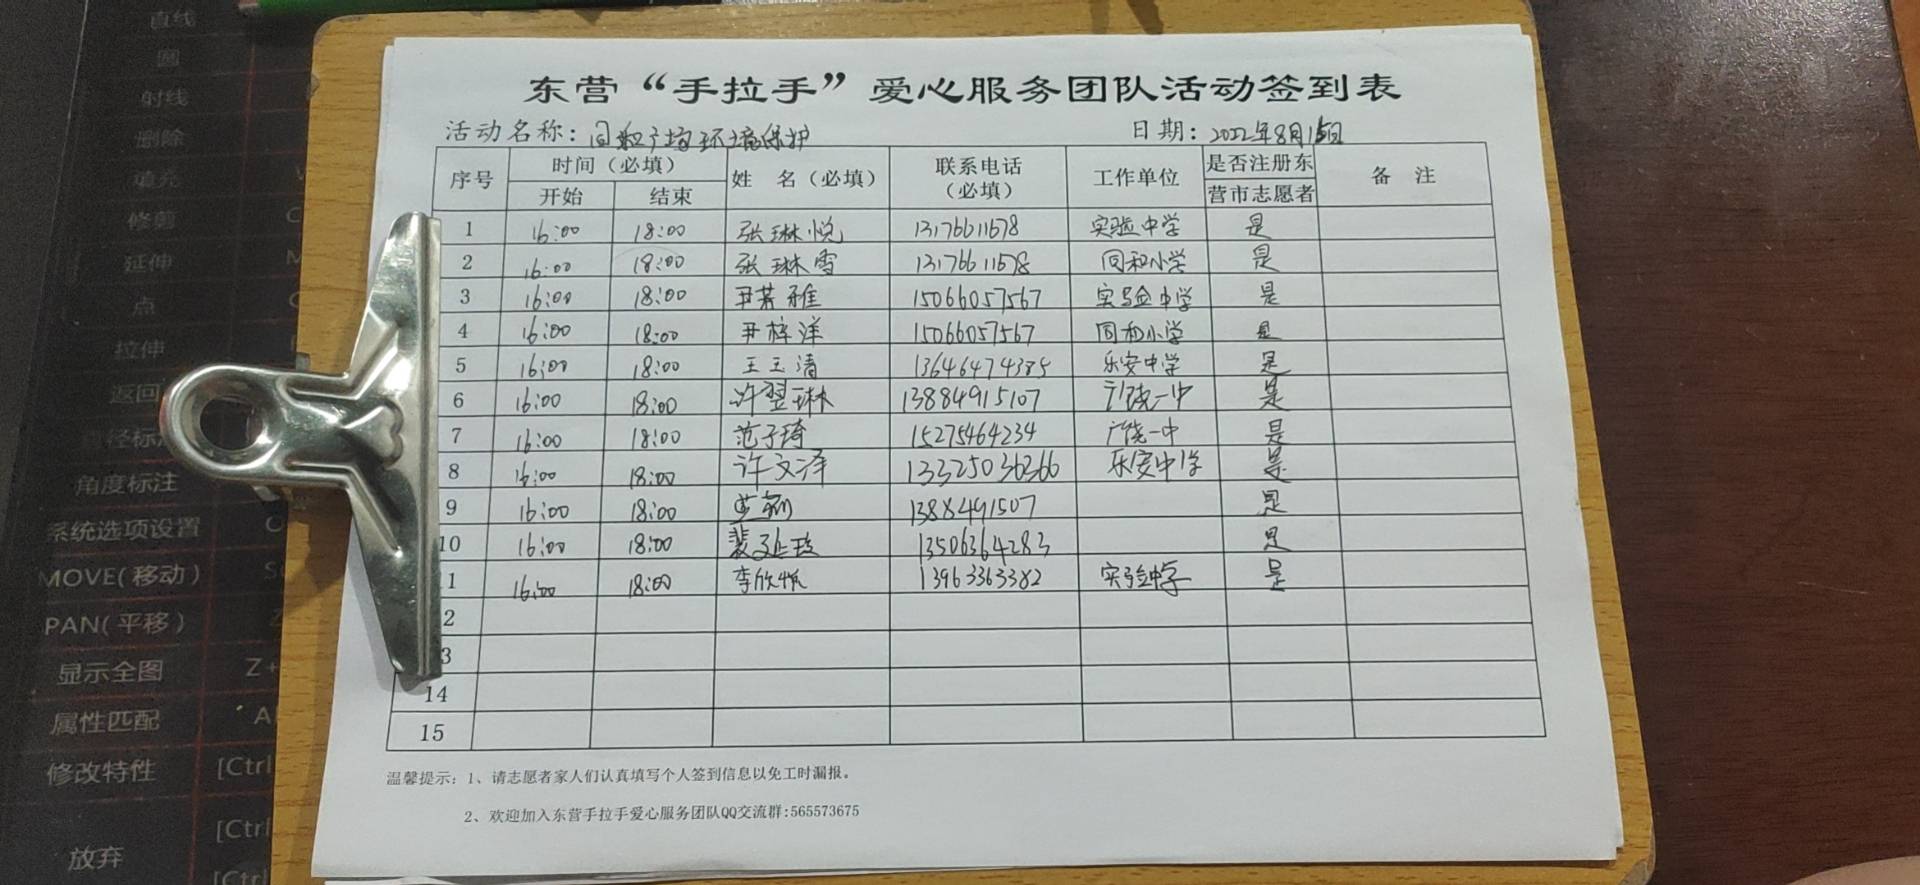 东营“手拉手”爱心服务团队活动签到表
活动名称：同和广场环境保护 日期：2022年8月15日
序号 时间（必填） 姓 名（必填） 联系电话（必填） 工作单位 是否注册东营市志愿者 备 注
开始 结束
1 16:00 18:00 张琳悦 13176611678 实验中学 是
2 16:00 18:00 张琳雪 13176611678 同和小学 是
3 16:00 18:00 尹若雅 15066057567 实验中学 是
4 16:00 18:00 尹梓洋 15066057567 同和小学 是
5 16:00 18:00 王玉清 13646474385 乐安中学 是
6 16:00 18:00 许翌琳 13884915107 广饶一中 是
7 16:00 18:00 范子琦 15275464234 广饶一中 是
8 16:00 18:00 许文泽 13325036366 乐安中学 是
9 16:00 18:00 1388491507 是
10 16:00 18:00 13506364283 是
1 16:00 18:00 李欣怡 13963363382 实验中学 是
2
3
14
15
温馨提示：1、请志愿者家人们认真填写个人签到信息以免工时漏报。
2、欢迎加入东营手拉手爱心服务团队QQ交流群:565573675
直线
圆
射线
删除
填充
修剪 C
延伸 M
点
拉伸
返回
角度标注
系统选项设置
MOVE(移动)
PAN(平移) Z
显示全图 Z+
属性匹配 A
修改特性 [Ctrl
[Ctrl
放弃
[Ctrl